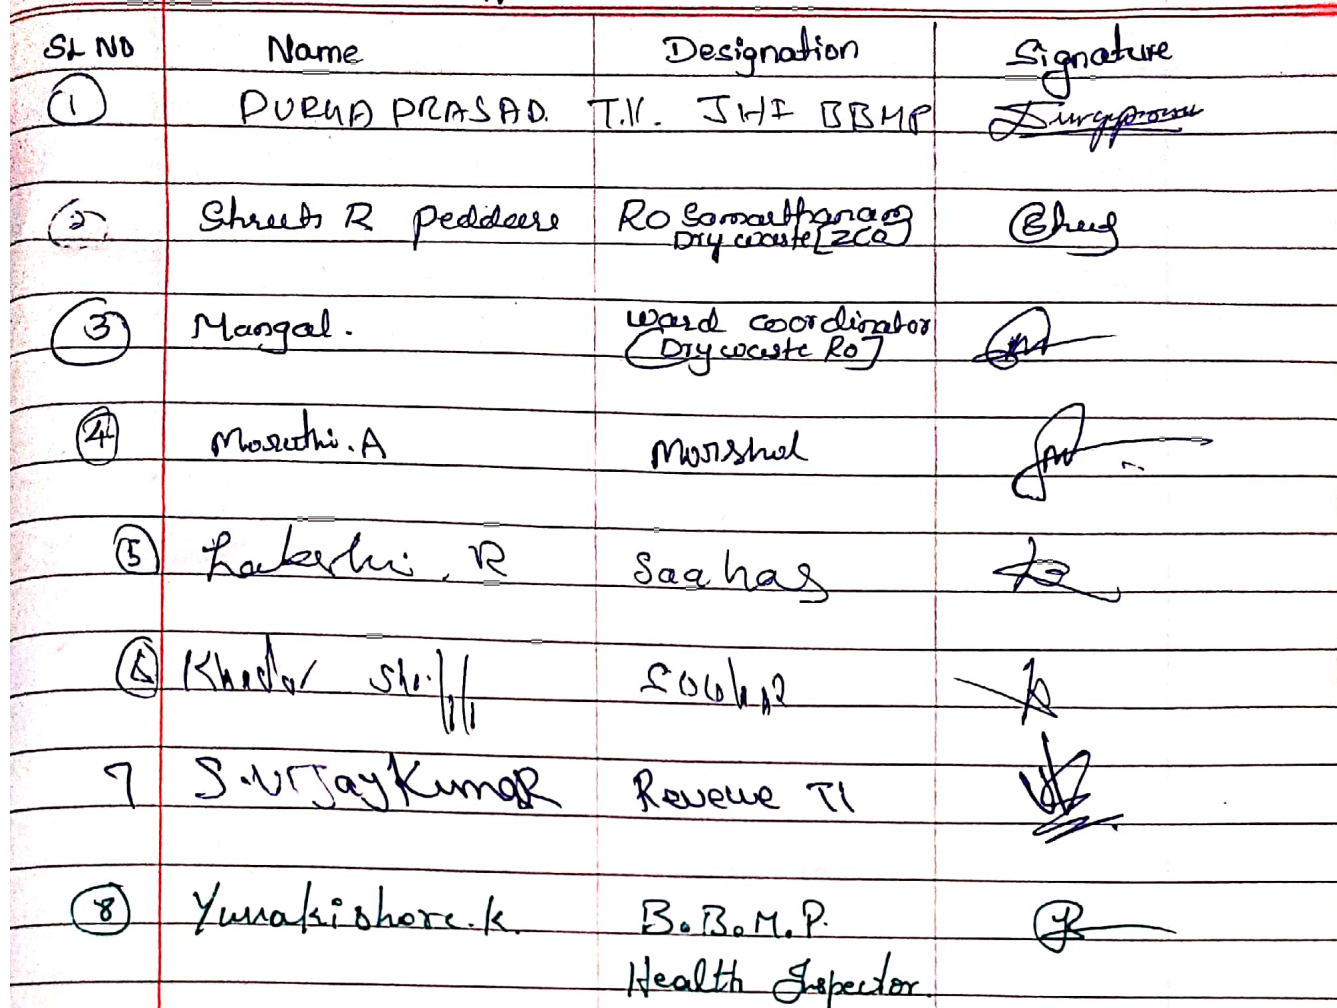 SL NO Name Designation Signature
1 DURGA PRASAD. T.V. JHI BBMP
2 Shruts R Peddeere RO Samarthanam
Dry waste [ZCO]
3 Mangal. ward coordinator
(Dry waste RO]
4 Maruthi.A Marshal
5 R Saahas
6 Khadar
7 S.VIJay KumaR Reveue TI
8 Yuvakishore.k. B.B.M.P.
Health Inspector.